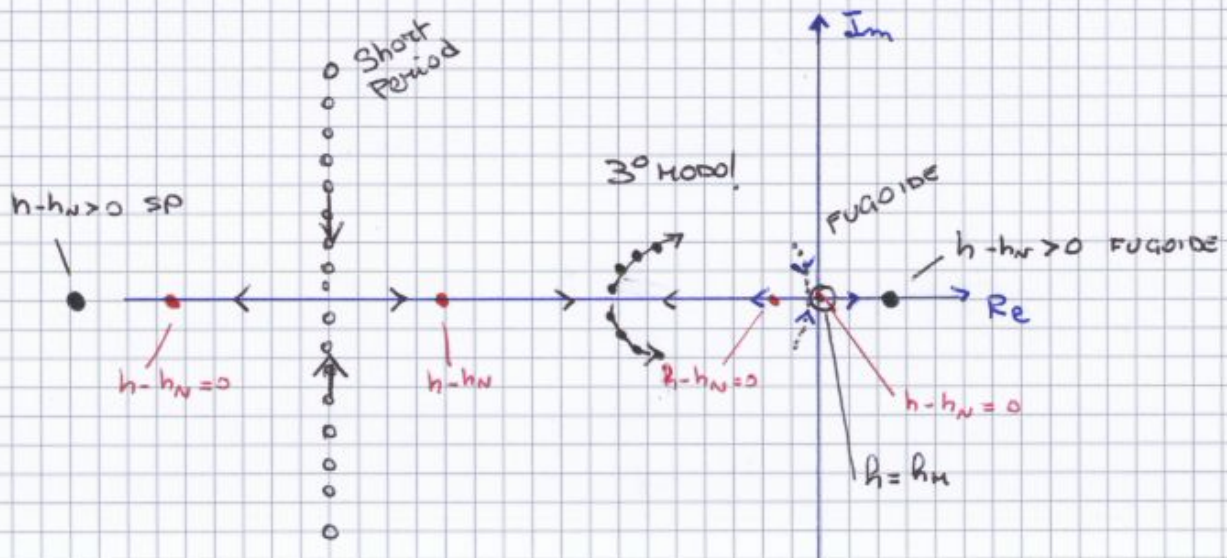 Im
Short
Period
3° MODO!
FUGOIDE
h-hN>0 SP
h-hN>0 FUGOIDE
Re
h-hN=0
h-hN
h-hN=0
h-hN=0
h=hM